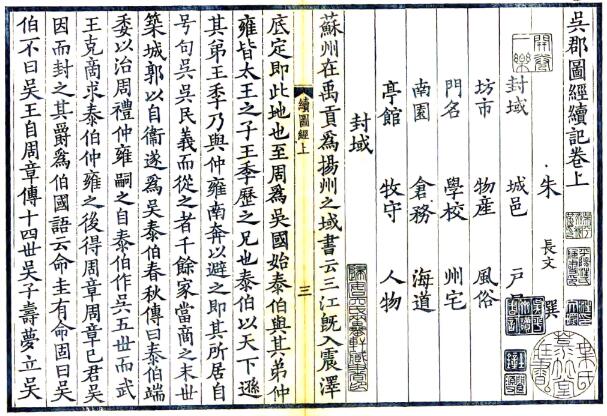 吳郡圖經續記卷上
朱長文撰
封域 城邑 戶
坊市 物産 風俗
門名 學校 州宅
南園 倉務 海道
亭館 牧守 人物
封域
蘇州在禹貢爲揚州之域書云三江旣入震澤
續圖經上 三
底定即此地也至周爲吳國始泰伯與其弟仲
雍皆太王之子王季歷之兄也泰伯以天下遜
其弟王季乃與仲雍南奔以避之即其所居自
号句吳吳民義而從之者千餘家當商之末世
築城郭以自衞遂爲吳泰伯春秋傳曰泰伯端
委以治周禮仲雍嗣之自泰伯作吳五世而武
王克商求泰伯仲雍之後得周章周章已君吳
因而封之其爵爲伯國語云命圭有命固曰吳
伯不曰吳王自周章傳十四世吳子壽夢立吳
開卷一樂